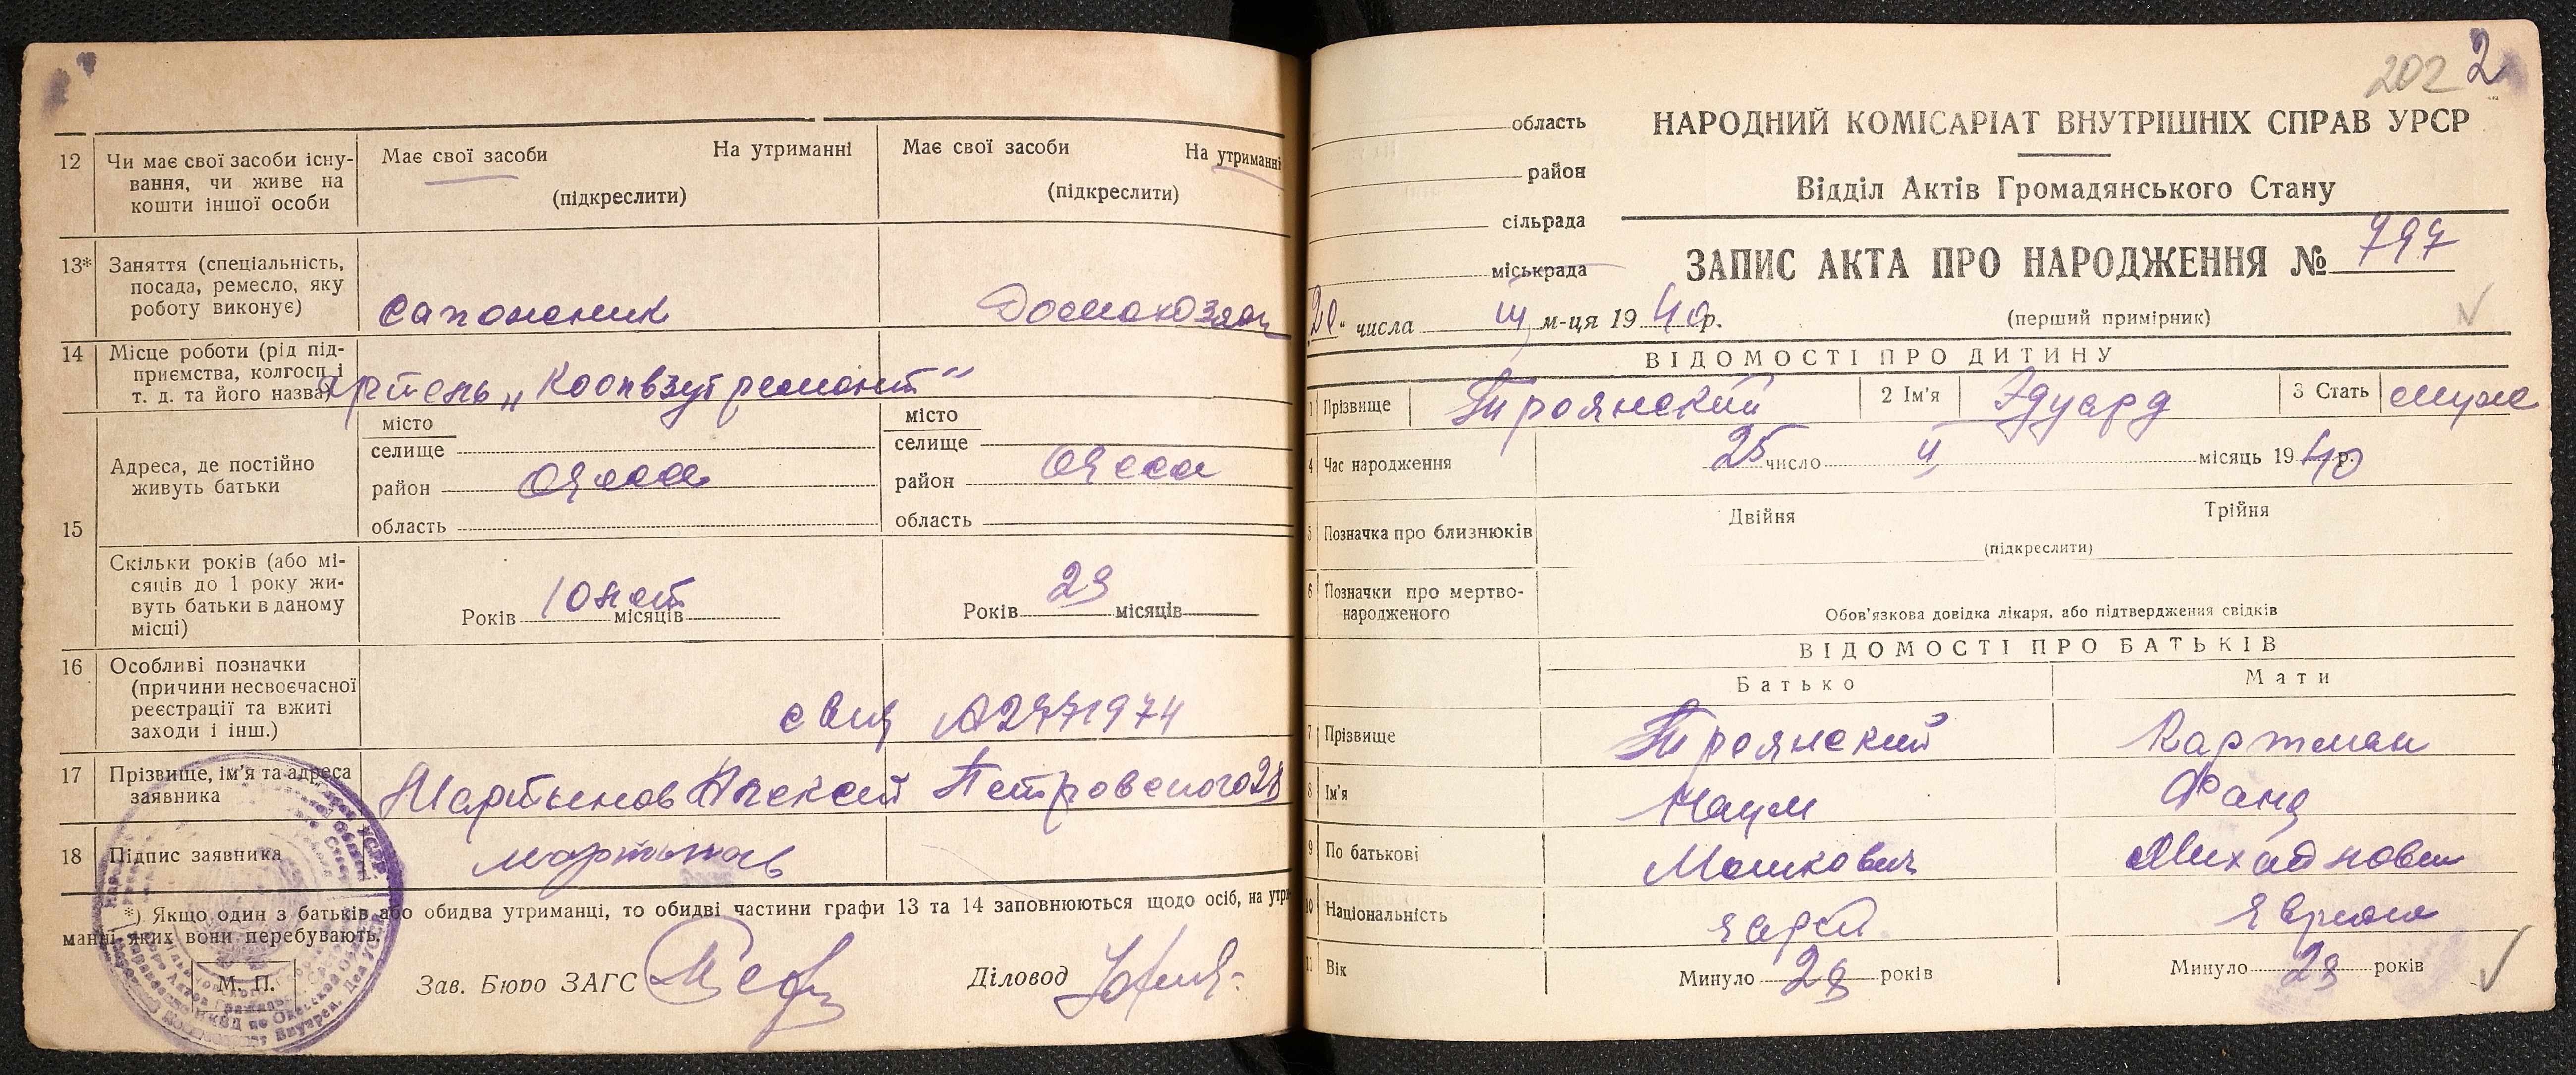 12 Чи має свої засоби існу-
вання, чи живе на
кошти іншої особи
Має свої засоби На утриманні
(підкреслити)
Має свої засоби На утриманні
(підкреслити)
13* Заняття (спеціальність,
посада, ремесло, яку
роботу виконує)
сапожник
Домохозяй
14 Місце роботи (рід під-
приємства, колгосп і
т. д. та його назва)
Артель „Коопвзутремонт"
15 Адреса, де постійно
живуть батьки
місто
селище
район Одесса
область
місто
селище
район Одесса
область
Скільки років (або мі-
сяців до 1 року жи-
вуть батьки в даному
місці)
Років 10 лет місяців
Років 23 місяців
16 Особливі позначки
(причини несвоєчасної
реєстрації та вжиті
заходи і інш.)
17 Прізвище, ім'я та адреса
заявника
Мартынов Алексей Петровского 28
18 Підпис заявника
Мартынов
*) Якщо один з батьків або обидва утриманці, то обидві частини графи 13 та 14 заповнюються щодо осіб, на утри-
манні яких вони перебувають.
М. П.
Зав. Бюро ЗАГС
Діловод
202 2
область
район
сільрада
міськрада
НАРОДНИЙ КОМІСАРІАТ ВНУТРІШНІХ СПРАВ УРСР
Відділ Актів Громадянського Стану
ЗАПИС АКТА ПРО НАРОДЖЕННЯ № 797
20 " числа III м-ця 19 40 р.
(перший примірник)
ВІДОМОСТІ ПРО ДИТИНУ
1 Прізвище Троянский 2 Ім'я Эдуард 3 Стать муж
4 Час народження 25 число II місяць 19 40 р.
5 Позначка про близнюків Двійня Трійня
(підкреслити)
6 Позначки про мертво-
народженого
Обов'язкова довідка лікаря, або підтвердження свідків
ВІДОМОСТІ ПРО БАТЬКІВ
Батько Мати
7 Прізвище Троянский Картман
8 Ім'я Наум Фаня
9 По батькові Мошкович Михайловн
10 Національність еврей еврейка
11 Вік Минуло 28 років Минуло 23 років